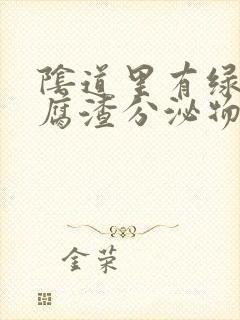 陰道里有绿
腐渣分泌物
金荣